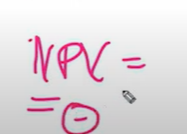 NPV =
= -